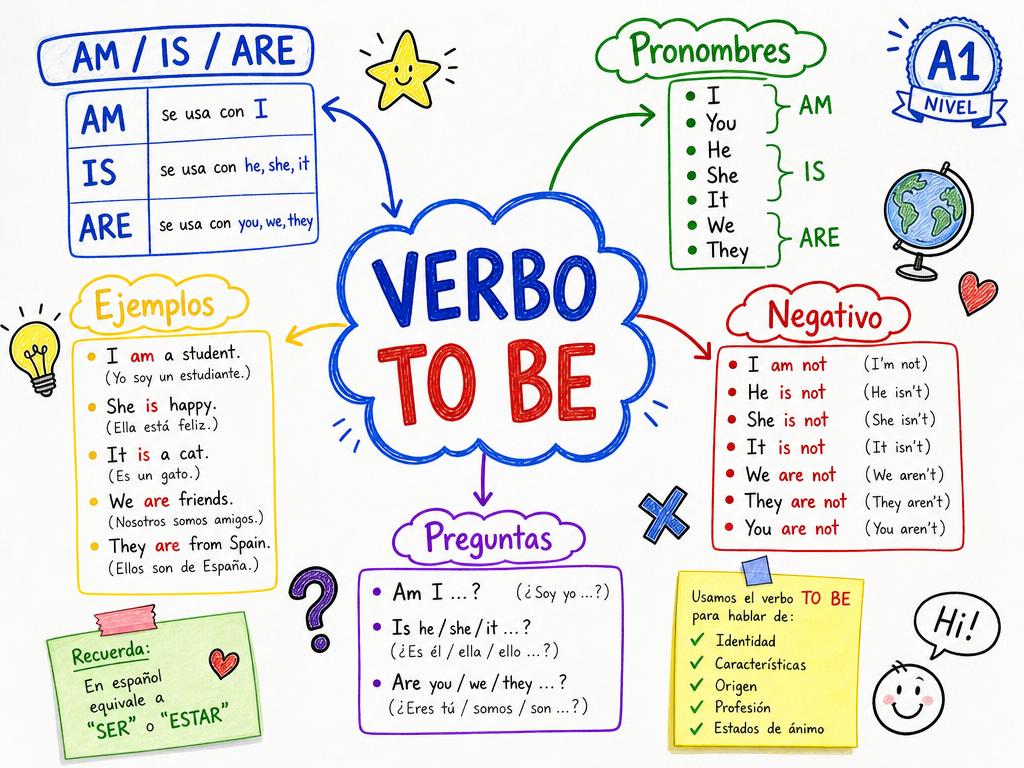 AM / IS / ARE
AM se usa con I
IS se usa con he, she, it
ARE se usa con you, we, they
Pronombres
I
You
AM
He
She
It
IS
We
They
ARE
A1
NIVEL
VERBO
TO BE
Ejemplos
I am a student.
(Yo soy un estudiante.)
She is happy.
(Ella está feliz.)
It is a cat.
(Es un gato.)
We are friends.
(Nosotros somos amigos.)
They are from Spain.
(Ellos son de España.)
Negativo
I am not (I'm not)
He is not (He isn't)
She is not (She isn't)
It is not (It isn't)
We are not (We aren't)
They are not (They aren't)
You are not (You aren't)
Preguntas
Am I ...? (¿Soy yo ...?)
Is he / she / it ...?
(¿Es él / ella / ello ...?)
Are you / we / they ...?
(¿Eres tú / somos / son ...?)
?
Recuerda:
En español
equivale a
"SER" o "ESTAR"
Usamos el verbo TO BE
para hablar de:
✓ Identidad
✓ Características
✓ Origen
✓ Profesión
✓ Estados de ánimo
Hi!